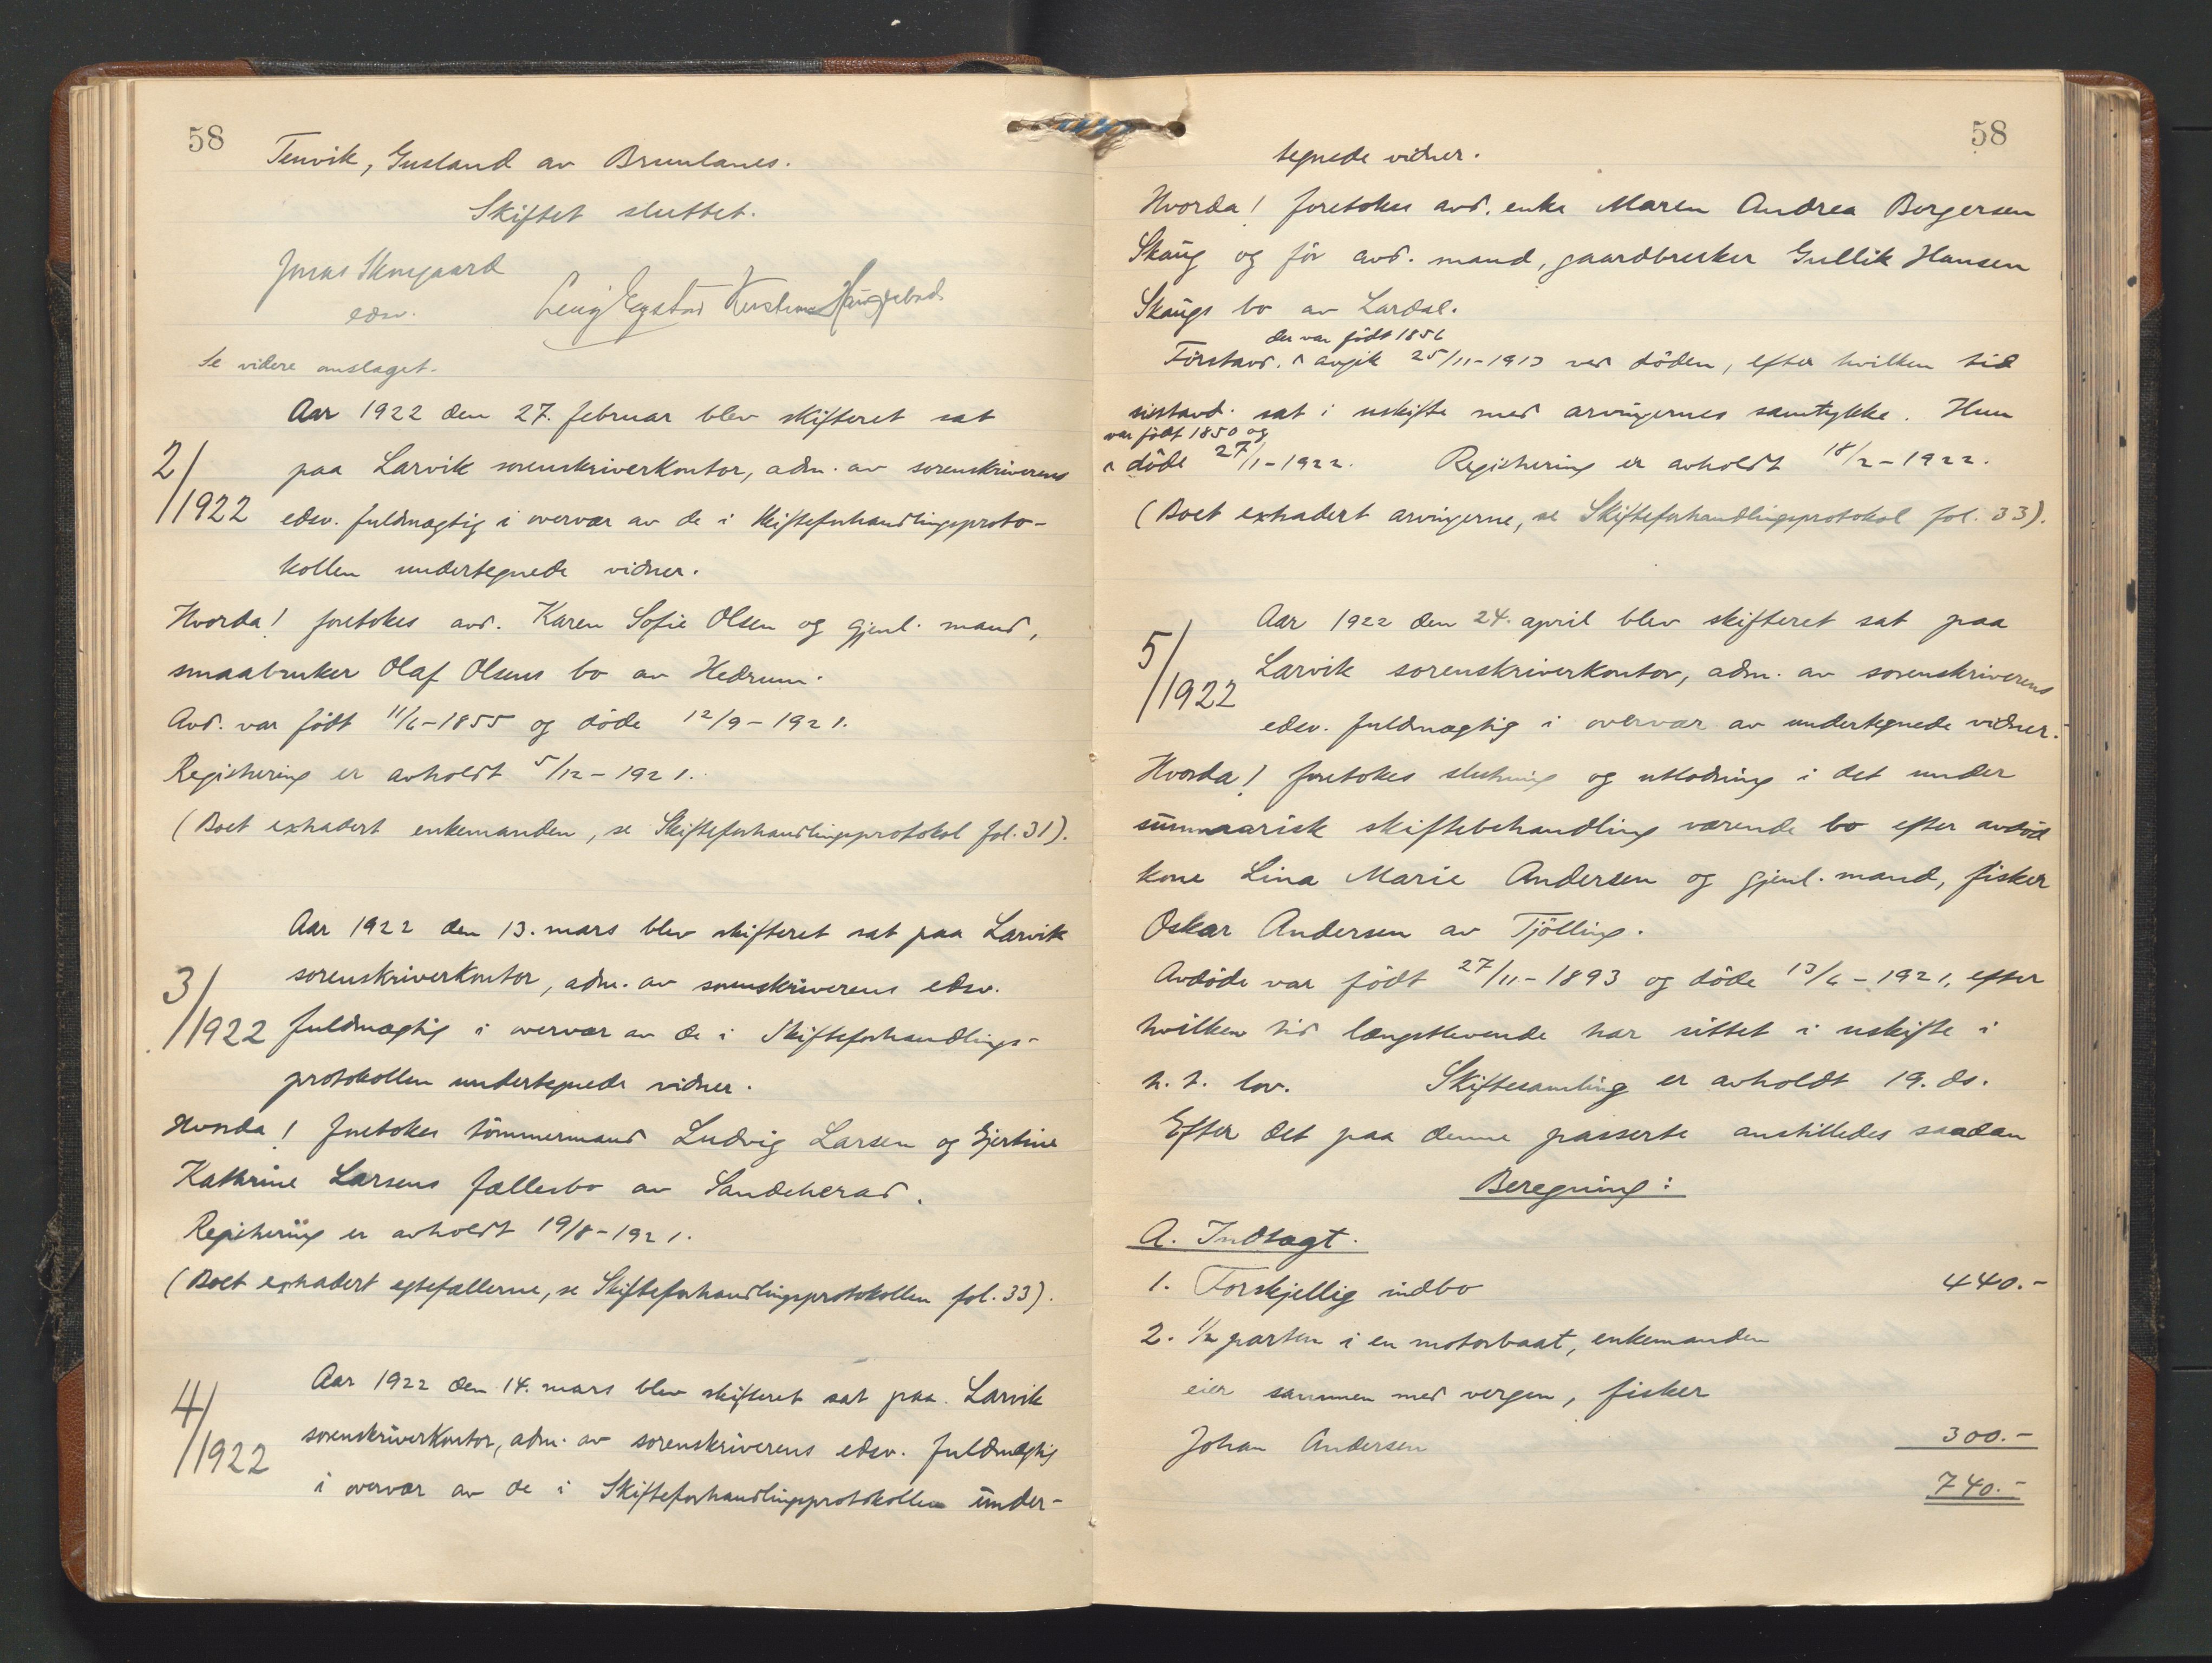 58
Tenvik, Gusland av Brunlanes.
Skiftet sluttet.
edsv.
Se videre omslaget.
Aar 1922 den 27. februar blev skifteret sat
2/1922
paa Larvik sorenskriverkontor, adm. av sorenskriverens
edsv. fuldmægtig i overvær av de i Skifteforhandlingsproto-
kollen undertegnede vidner.
Hvorda! foretokes avd. Karen Sofie Olsen og gjenl. mand,
smaabruker Olaf Olsens bo av Hedrum.
Avd. var født 11/6-1855 og døde 12/9-1921.
Registrering er avholdt 5/12-1921.
(Boet extradert enkemanden, se Skifteforhandlingsprotokol fol. 31).
Aar 1922 den 13. mars blev skifteret sat paa Larvik
3/1922
sorenskriverkontor, adm. av sorenskriverens edsv.
fuldmægtig i overvær av de i Skifteforhandlings-
protokollen undertegnede vidner.
Hvorda! foretokes tømmermand Ludvig Larsen og Gjertine
Kathrine Larsens fællesbo av Sandeherad.
Registrering er avholdt 19/8-1921.
(Boet extradert egtefællerne, se Skifteforhandlingsprotokollen fol. 33).
Aar 1922 den 14. mars blev skifteret sat paa Larvik
4/1922
sorenskriverkontor, adm. av sorenskriverens edsv. fuldmægtig
i overvær av de i Skifteforhandlingsprotokollen under-
58
tegnede vidner.
Hvorda! foretokes avd. enke Maren Andrea Borgersen
Skaug og før avd. mand, gaardbruker Gullik Hansen
Skaugs bo av Lardal.
der var født 1856
Førstavd. avgik 25/11-1913 ved døden, efter hvilken tid
sistavd. sat i uskifte med arvingernes samtykke. Hun
var født 1850 og
døde 27/1-1922. Registrering er avholdt 18/2-1922.
(Boet extradert arvingerne, se Skifteforhandlingsprotokol fol. 33).
Aar 1922 den 24. april blev skifteret sat paa
5/1922
Larvik sorenskriverkontor, adm. av sorenskriverens
edsv. fuldmægtig i overvær av undertegnede vidner.
Hvorda! foretokes slutning og utlodning i det under
summarisk skiftebehandling værende bo efter avdød
kone Lina Marie Andersen og gjenl. mand, fisker
Oskar Andersen av Tjølling.
Avdøde var født 27/11-1893 og døde 13/6-1921, efter
hvilken tid længstlevende har sittet i uskifte i
h. t. lov. Skiftesamling er avholdt 19. ds.
Efter det paa denne passerte anstilledes saadan
Beregning:
A. Indtægt.
1. Forskjellig indbo 440.-
2. 1/2 parten i en motorbaat, enkemanden
eier sammen med vergen, fisker
Johan Andersen 300.-
740.-